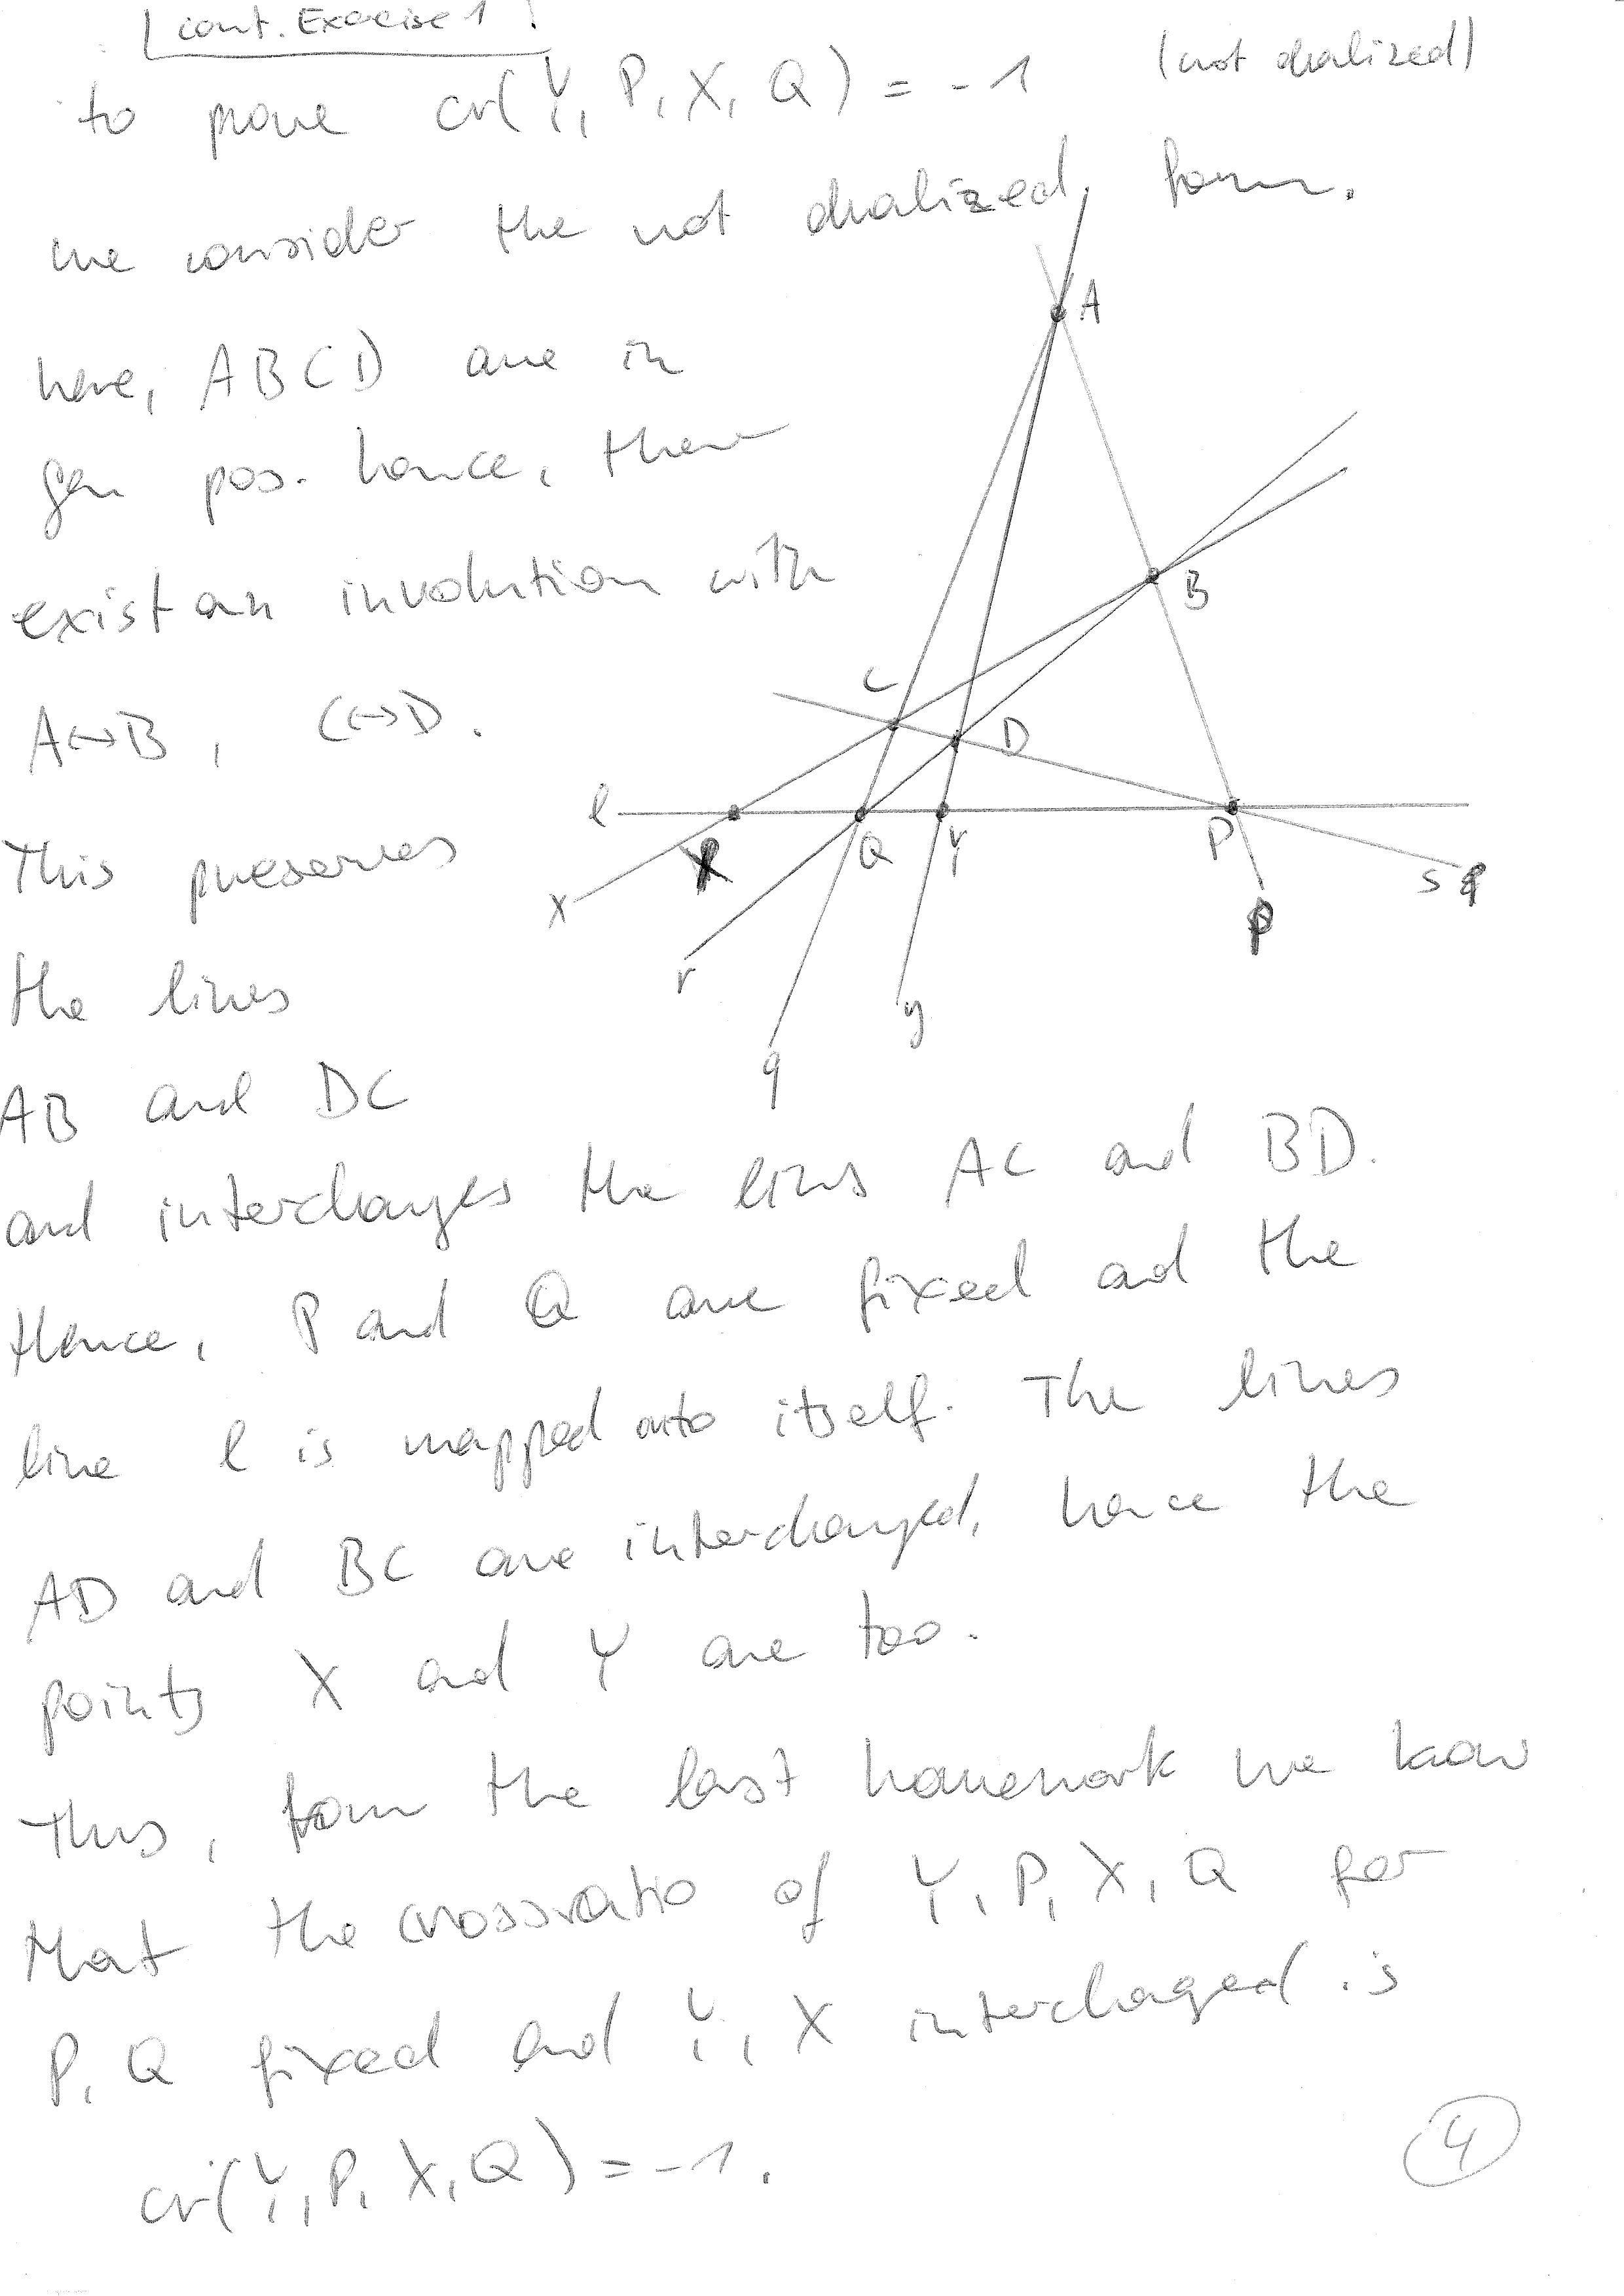 cont. Exercise 1 !
to prove cr(Y, P, X, Q) = -1 (not dualized)
we consider the not dualized form.
here, ABCD are in
gen pos. hence, there
exist an involution with
A↔B, C↔D.
This preserves
the lines
AB and DC
and interchanges the lines AC and BD.
Hence, P and Q are fixed and the
line l is mapped onto itself. The lines
AD and BC are interchanged, hence the
points X and Y are too.
Thus, from the last homework we know
that the crossratio of Y, P, X, Q for
P, Q fixed and Y, X interchanged is
cr(Y, P, X, Q) = -1.
A
B
C
D
l
X
Q
Y
P
x
r
q
y
p
s
4